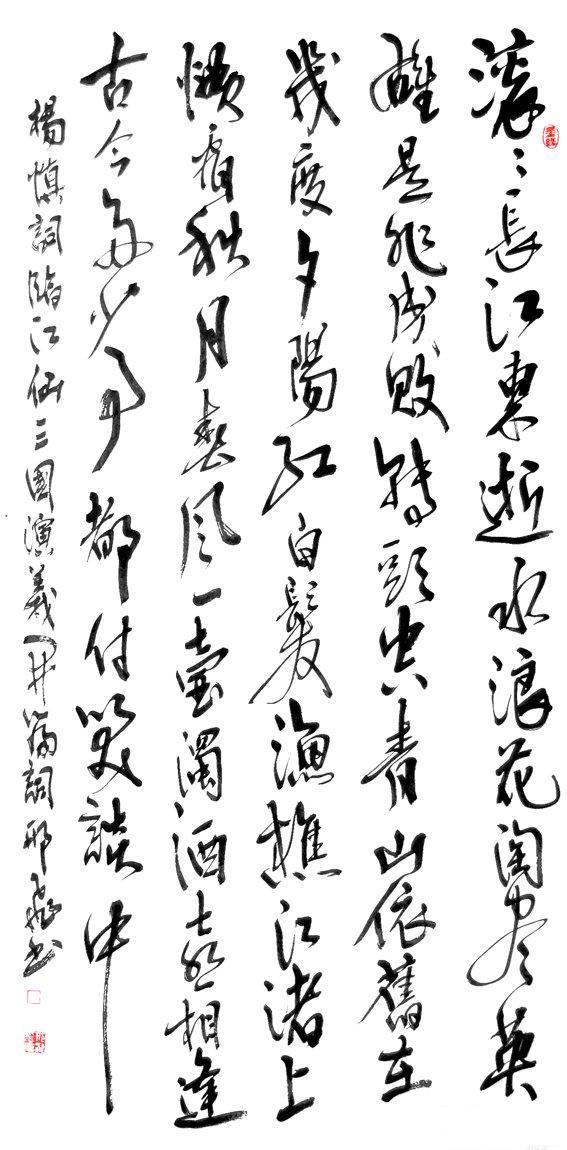 滚〻長江東逝水浪花淘尽英
雄是非成敗转頭空青山依舊在
幾度夕陽红白髮漁樵江渚上
慣看秋月春风一壺濁酒喜相逢
古今多少事都付笑談中
楊慎詞臨江仙三國演義开篇詞邢飛书